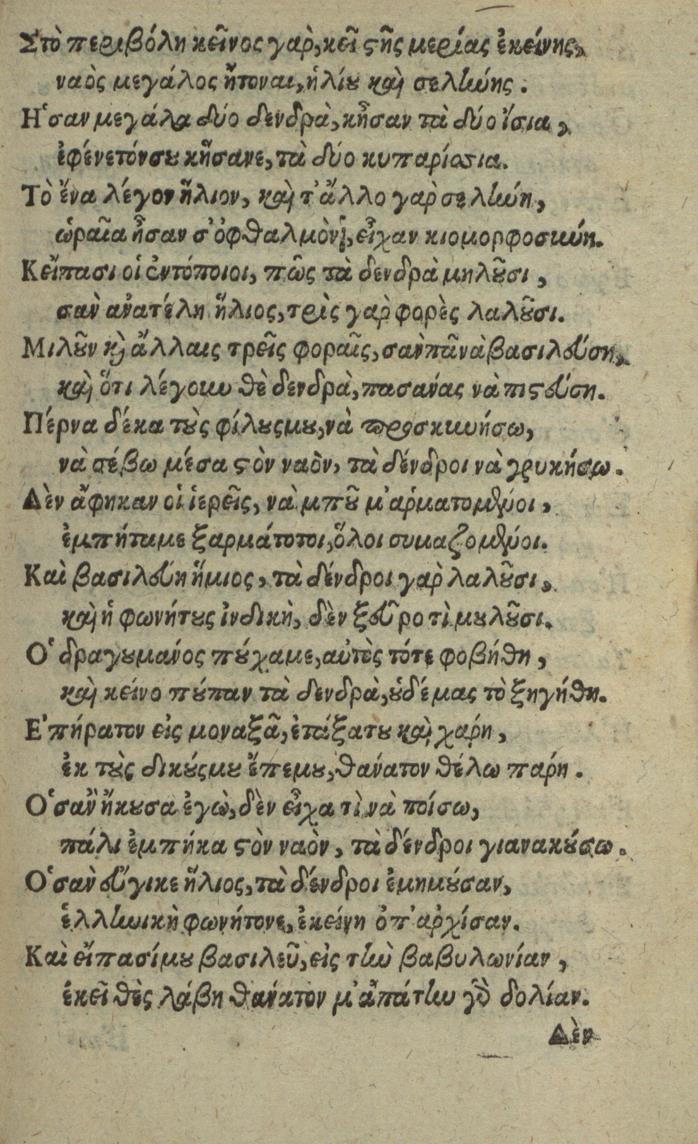 Στὸ περιβόλη κεῖνος γαρ, κεῖ στῆς μερίας ἐκείνης,
ναὸς μεγάλος ἤτοναι, ἡλίου καὶ σελήνης.
Ἡ̓σαν μεγάλα δύο δενδρὰ, κῆσαν τὰ δύο ἴσια,
ἐφένετόνσου κῆσανε, τὰ δύο κυπαρίσσια.
Τὸ ἕνα λέγον ἥλιον, καὶ τ' ἄλλο γαρ σελήνη,
ὡραῖα ἦσαν σ' ὀφθαλμὸν, εἶχαν κιομορφοσύνην.
Κείπασι οἱ ἐντόποιοι, πῶς τὰ δενδρὰ μηλοῦσι,
σαν ἀνατέλη ἥλιος, τρὶς γαρ φορὲς λαλοῦσι.
Μιλοῦν καὶ ἄλλαις τρεῖς φοραῖς, σαν πᾶν νὰ βασιλεύση,
καὶ ὅτι λέγουν θὲ δενδρὰ, πασανας νὰ πιστεύση.
Πέρνα δέκα τοὺς φίλουςμου, νὰ προσκυνήσω,
νὰ σέβω μέσα στὸν ναὸν, τὰ δένδροι νὰ γρυκήσω.
Δὲν ἄφηκαν οἱ ἱερεῖς, νὰ μποῦ μ' ἁρματομένοι,
ἐμπήταμε ξαρμάτοτοι, ὅλοι συμαζομένοι.
Καὶ βασιλεύη ἥμιος, τὰ δένδροι γαρ λαλοῦσι,
καὶ ἡ φωνήτους ἰνδικὴ, δὲν ξεῦρο τὶ μυλοῦσι.
Ὁ δραγουμάνος πούχαμε, αὐτὲς τότε φοβήθη,
καὶ κείνο πούπαν τὰ δενδρὰ, οὐδέ μας τὸ ξηγήθη.
Ἐπήρατον εἰς μοναξᾶ, ἐτάξατου καὶ χάρη,
ἐκ τοὺς δικούςμου ἔπεμου, θάνατον θέλω πάρη.
Ὁ̓σαν ἤκουσα ἐγὼ, δὲν εἶχα τὶ νὰ ποίσω,
πάλι ἐμπήκα στὸν ναὸν, τὰ δένδροι γιανακούσω.
Ὁ̓σαν εὔγικε ἥλιος, τὰ δένδροι ἐμημύσαν,
ἑλληνικὴ φωνήτονε, ἐκείνη ὁπ' ἀρχίσαν.
Καὶ εἴπασίμου βασιλεῦ, εἰς τὴν βαβυλωνίαν,
ἐκεῖ θὲς λάβη θάνατον μ' ἀπάτην γὸ δολίαν.
Δὲν